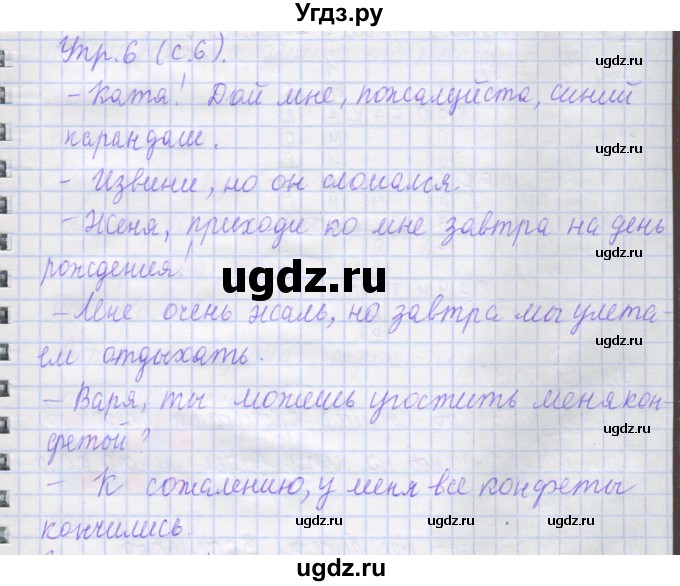 Угдз.ру
Упр.6 (с.6).
ugdz.ru
ugdz.ru
- Катя! Дай мне, пожалуйста, синий
карандаш.
ugdz.ru
- Извини, но он сломался
- Женя, приходи ко мне завтра на день
рождения!
ugdz.ru
ugdz.ru
- Мне очень жаль, но завтра мы улета-
ем отдыхать.
ugdz.ru
- Варя, ты можешь угостить меня кон-
фетой?
ugdz.ru
- К сожалению, у меня все конфеты
кончились.
ugdz.ru
ugdz.ru
ugdz.ru
Угдз.ру